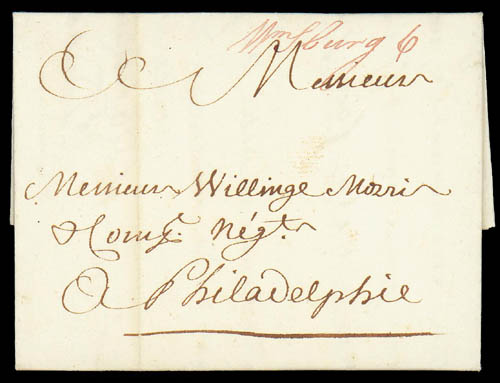 Wmsburg 6
Messieurs
Messieurs Willinge Morris
& Comy. Négts
A Philadelphie